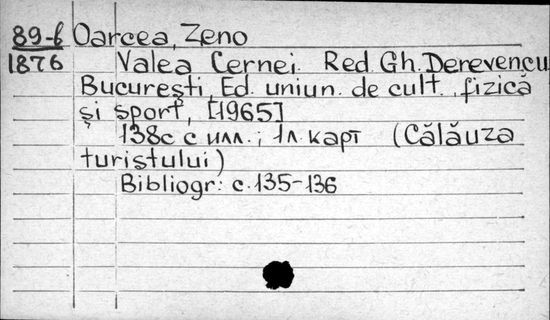 89-6 Oarcea, Zeno
1876 Valea Cernei. Red. Gh. Derevencu
București, Ed. uniun. de cult. fizică
și sport, [1965]
138с с илл.; 1л. карт (Călăuza
turistului)
Bibliogr: c. 135-136